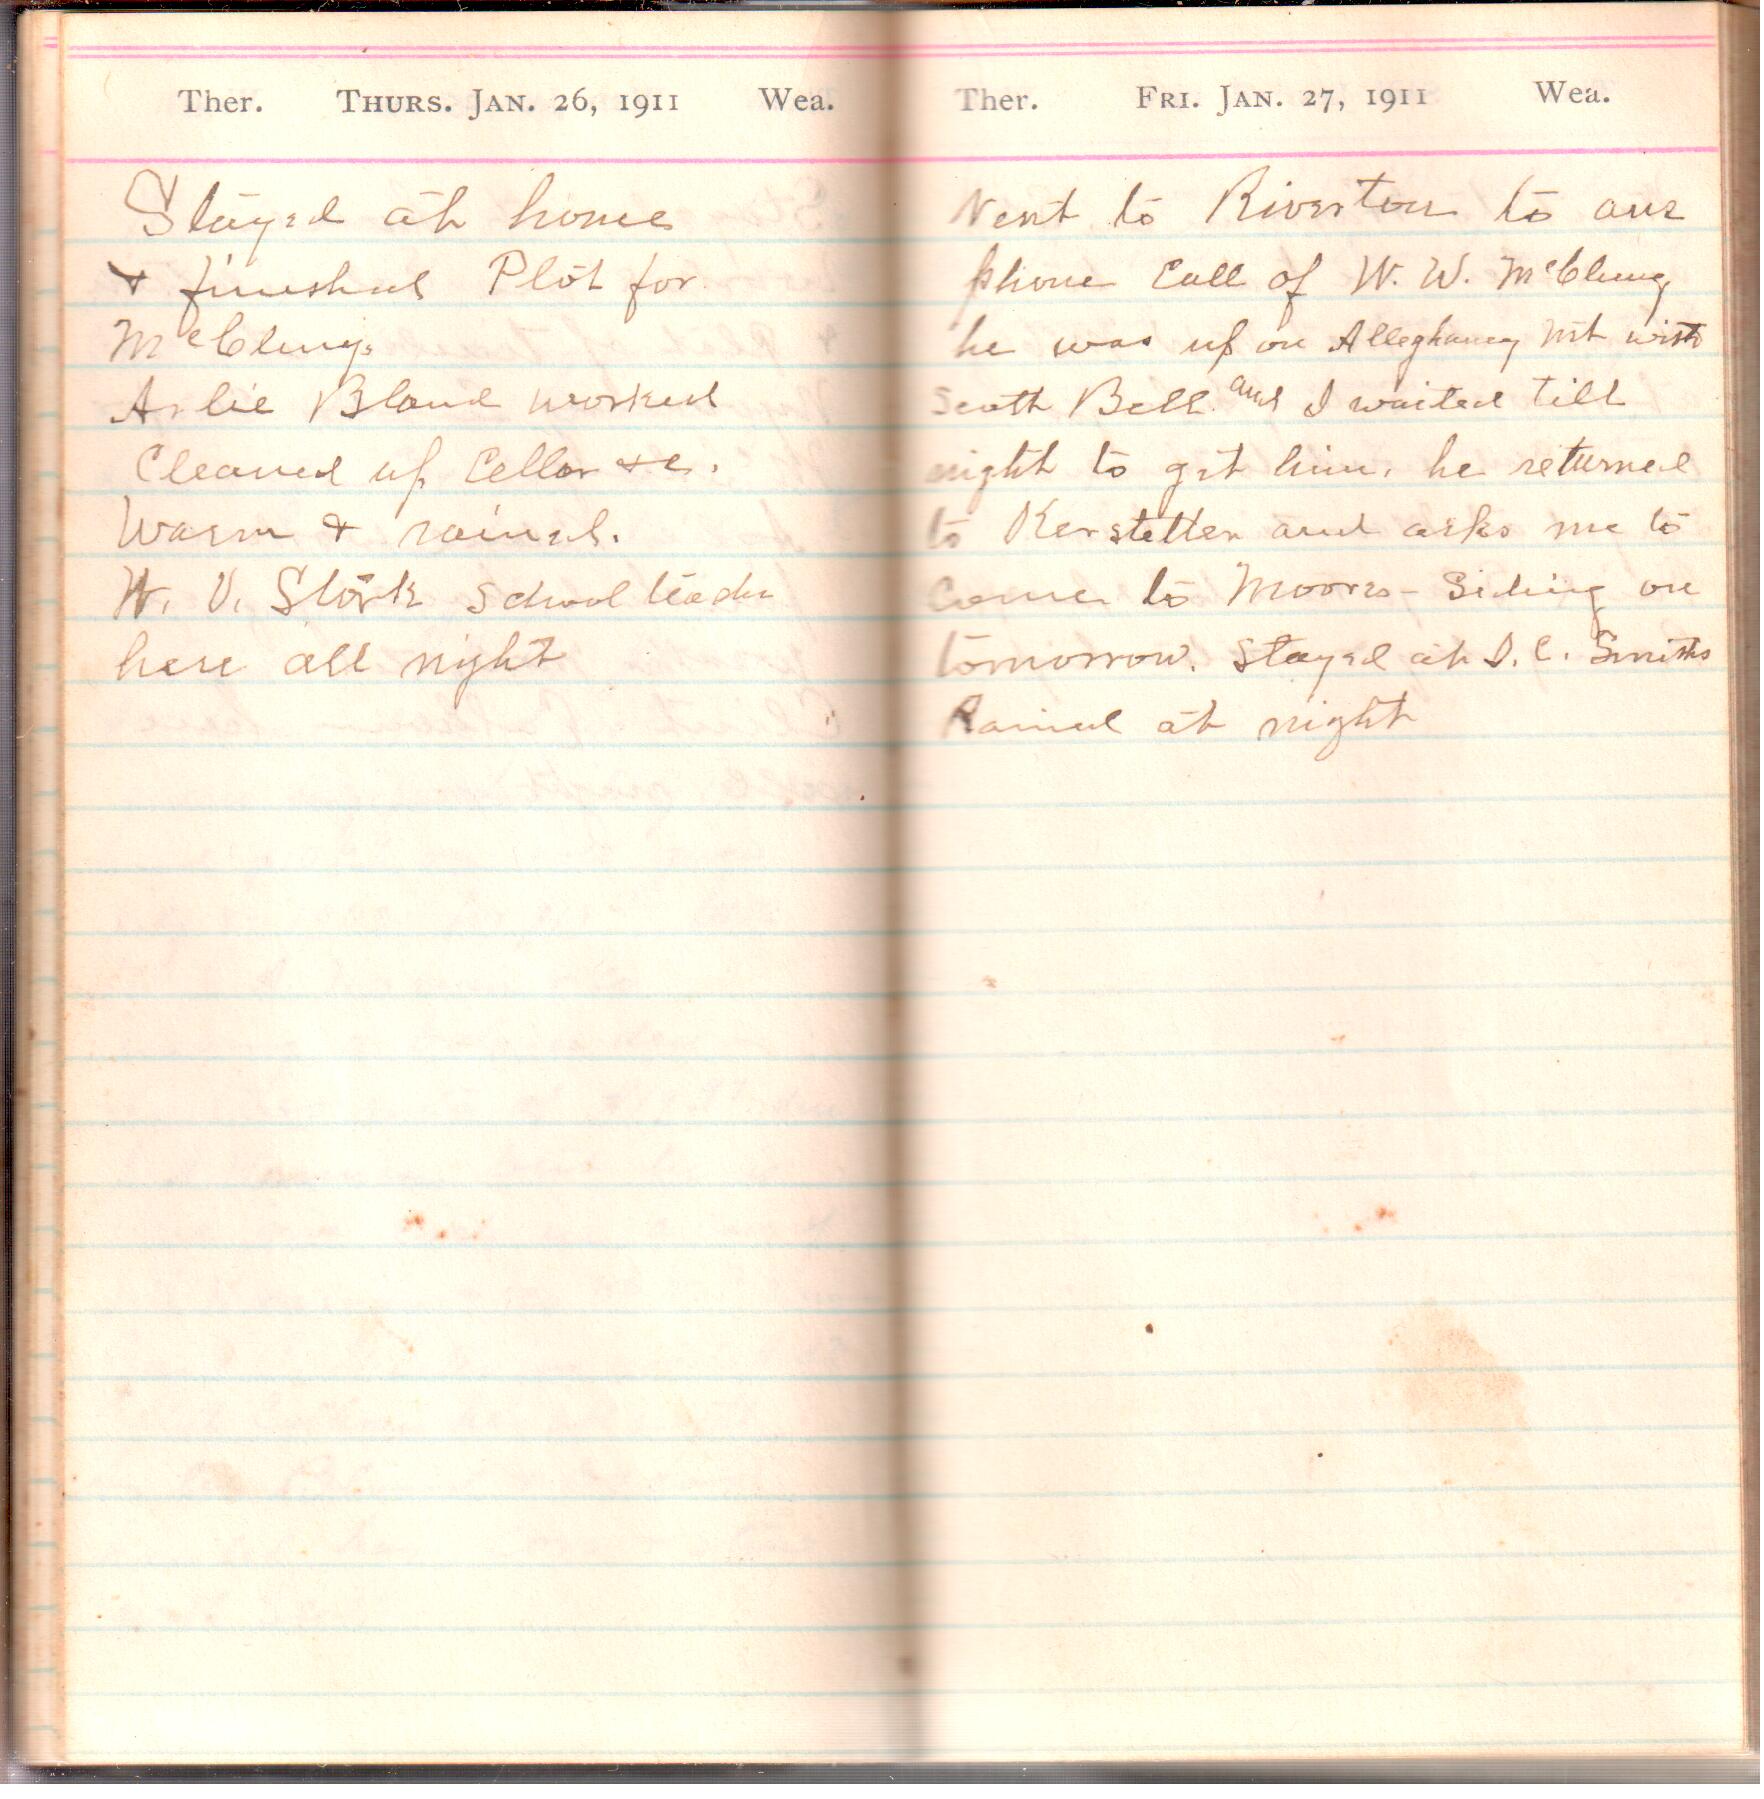 Ther. THURS. JAN. 26, 1911 Wea.
Stayed at home
& finished Plot for
McClung.
Arlie Bland worked
Cleaned up Cellar &c.
Warm & rained.
W. V. School teacher
here all night
Ther. FRI. JAN. 27, 1911 Wea.
Went to Riverton to ans
phone Call of W. W. McClung
he was up on Alleghaney Mt with
Scott Bell and I waited till
night to get him. he returned
to Kerstetter and asks me to
Come to Moores-Siding on
tomorrow. Stayed at I. C. Smiths
Rained at night